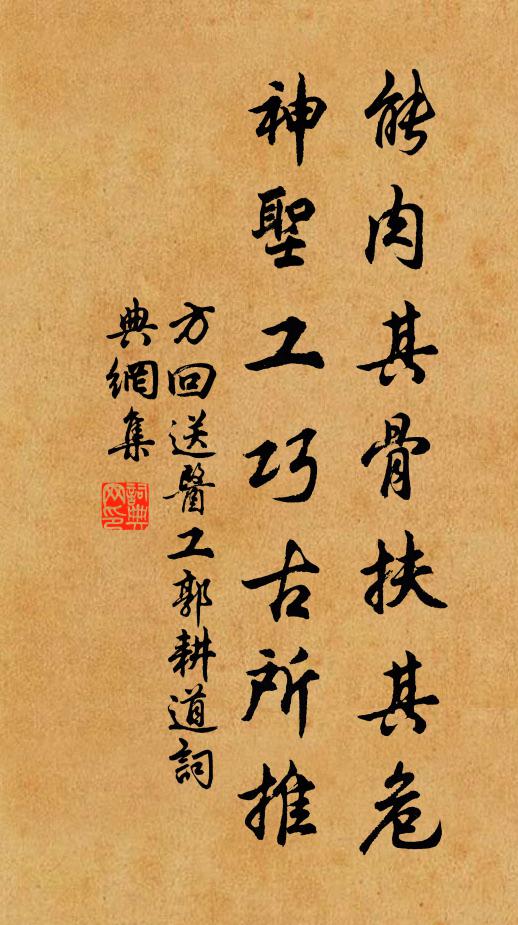 能肉其骨扶其危
神聖工巧古所推
方回送醫工郭耕道詞
典網集
詞典
网印